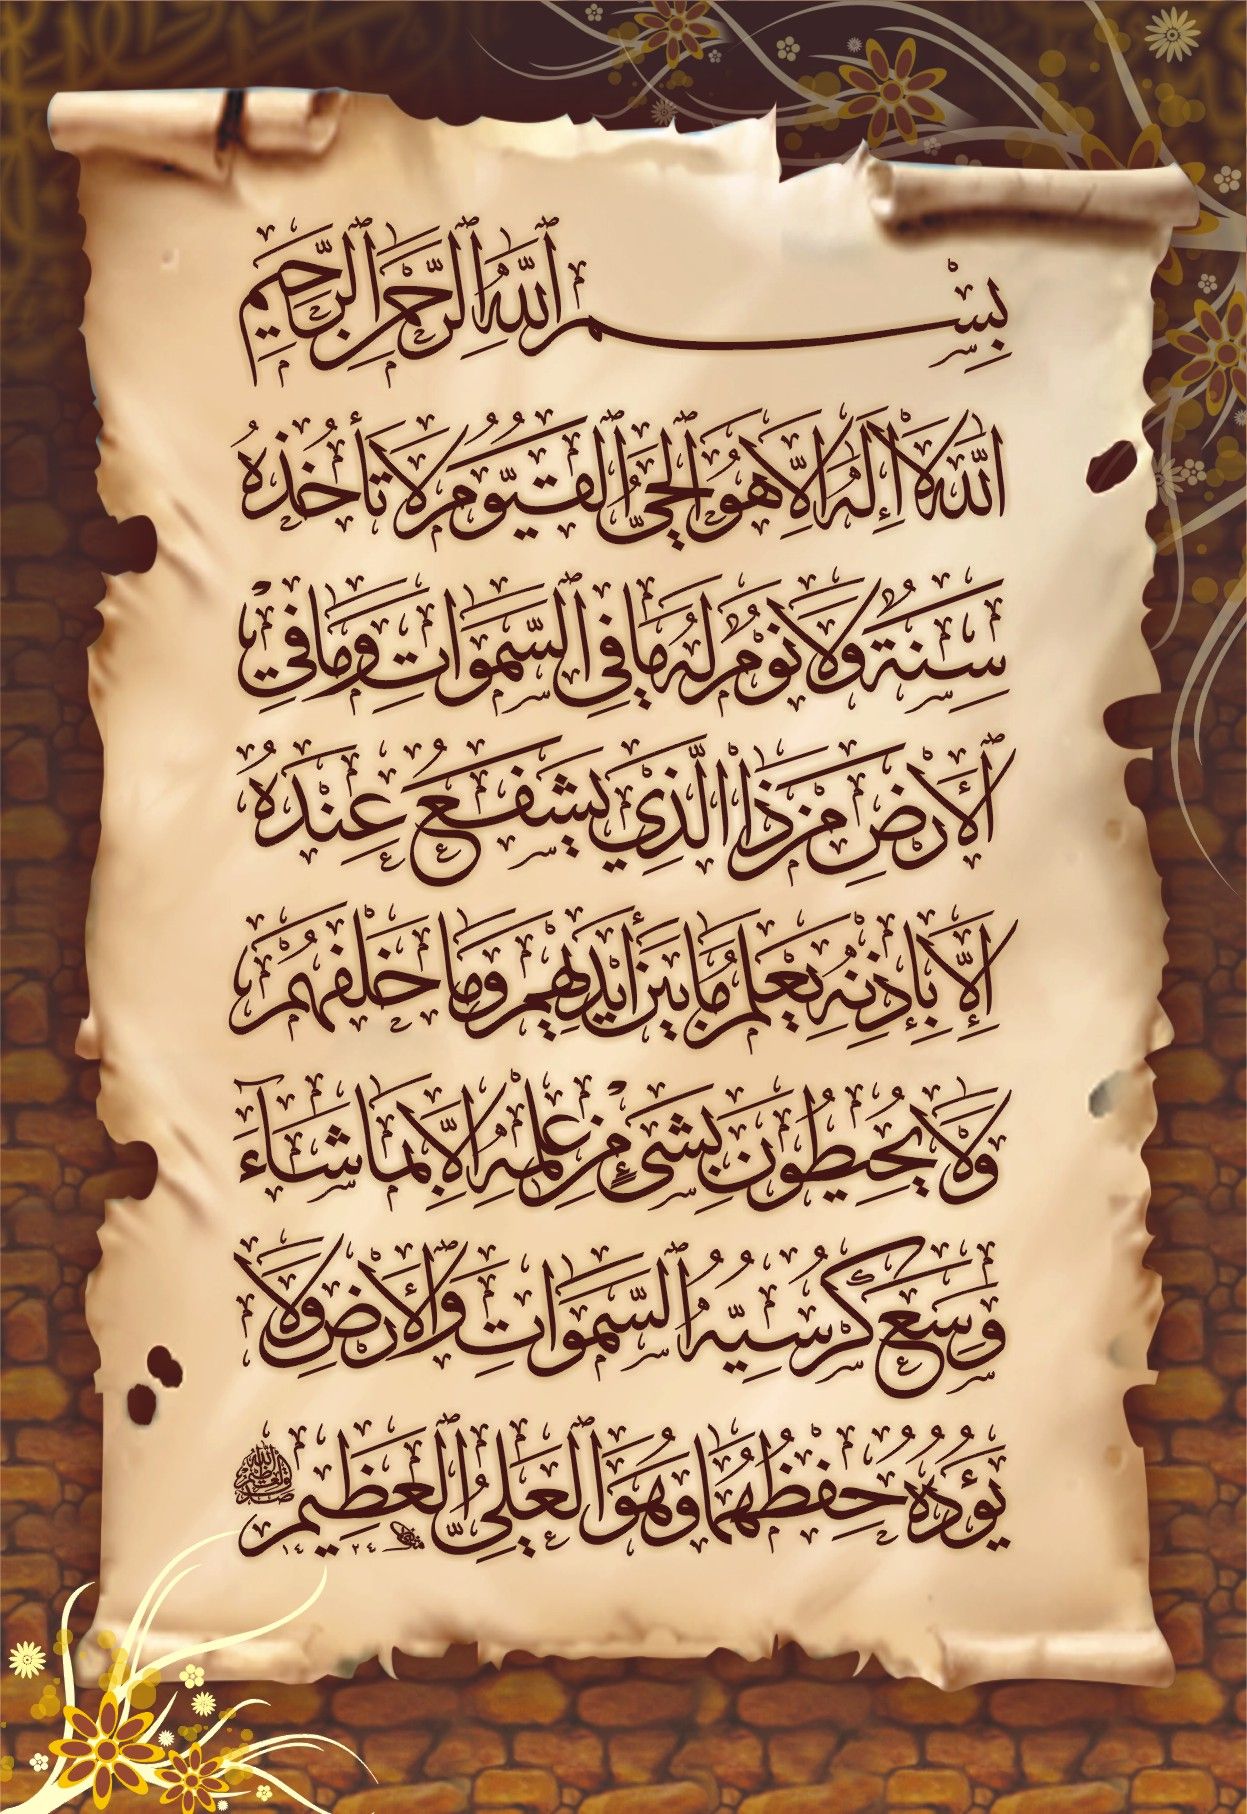 بِسْمِ ٱللَّهِ ٱلرَّحْمٰنِ ٱلرَّحِيمِ
اَللّٰهُ لَا إِلٰهَ إِلَّا هُوَ ٱلْحَيُّ ٱلْقَيُّومُ لَا تَأْخُذُهُ
سِنَةٌ وَلَا نَوْمٌ لَهُ مَا فِي ٱلسَّمٰوَاتِ وَمَا فِي
ٱلْأَرْضِ مَنْ ذَا الَّذِي يَشْفَعُ عِنْدَهُ
إِلَّا بِإِذْنِهِ يَعْلَمُ مَا بَيْنَ أَيْدِيهِمْ وَمَا خَلْفَهُمْ
وَلَا يُحِيطُونَ بِشَيْءٍ مِنْ عِلْمِهِ إِلَّا بِمَا شَآءَ
وَسِعَ كُرْسِيُّهُ ٱلسَّمٰوَاتِ وَٱلْأَرْضَ وَلَا
يَؤُدُهُ حِفْظُهُمَا وَهُوَ ٱلْعَلِيُّ ٱلْعَظِيمُ
صدق الله العظيم